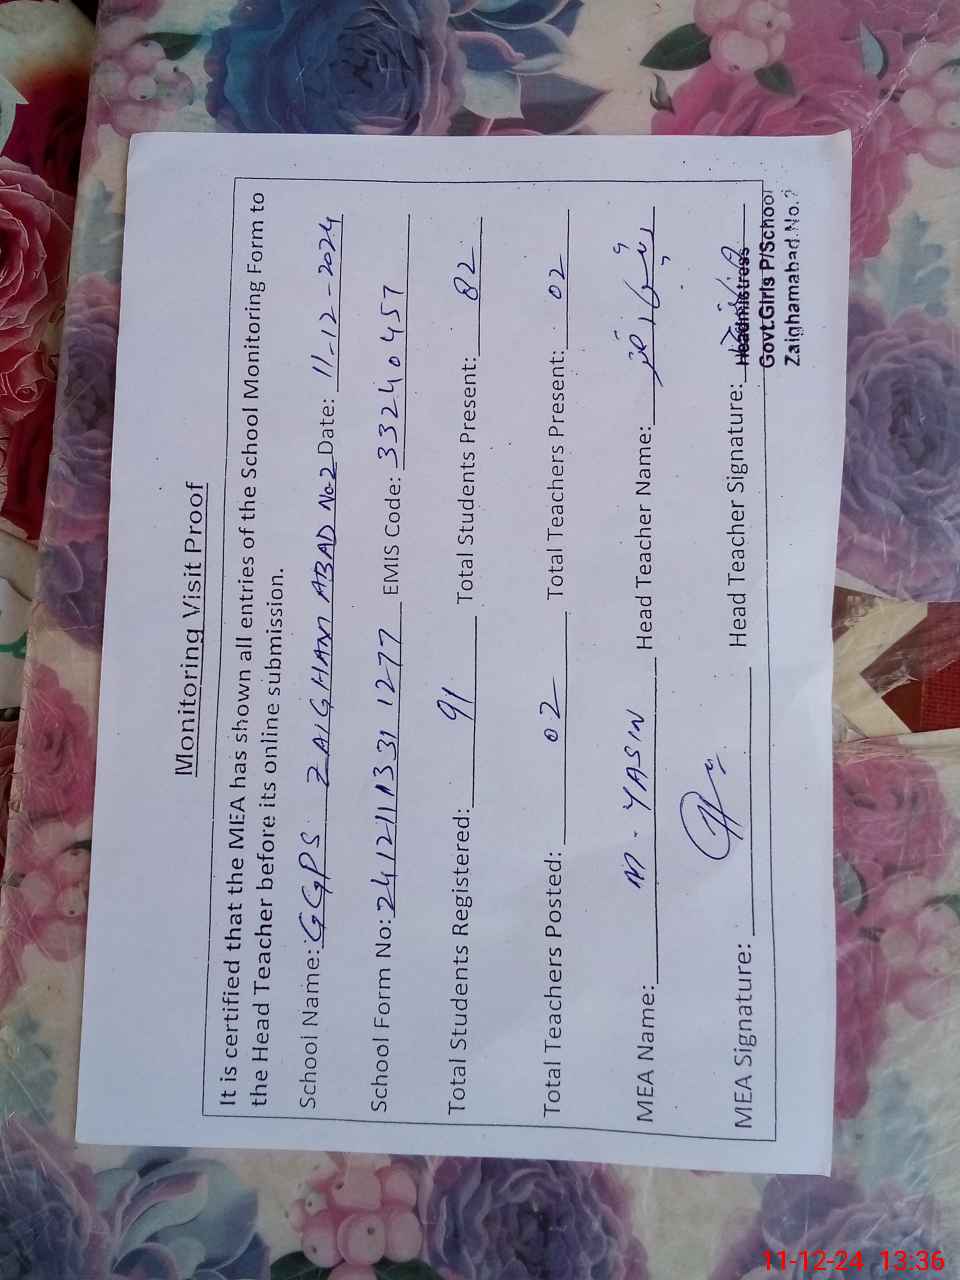 Monitoring Visit Proof
It is certified that the MEA has shown all entries of the School Monitoring Form to
the Head Teacher before its online submission.
School Name: GGPS ZAIGHAM ABAD No.2 Date: 11-12-2024
School Form No: 2412111331 1277 EMIS Code: 33240457
Total Students Registered: 91 Total Students Present: 82
Total Teachers Posted: 02 Total Teachers Present: 02
MEA Name: M. YASIN Head Teacher Name:
MEA Signature: Head Teacher Signature:
Headmistress
Govt.Girls P/School
Zaighamabad.No.2
11-12-24 13:36